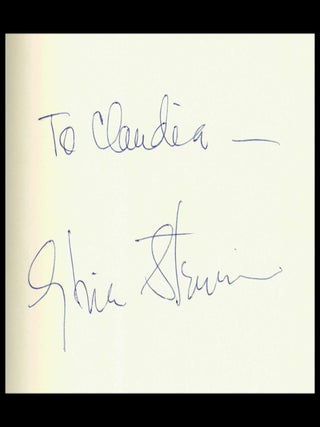 To Claudia —
Gloria Steinem